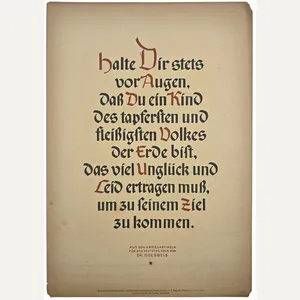 Halte Dir stets
vor Augen,
daß Du ein Kind
des tapfersten und
fleißigsten Volkes
der Erde bist,
das viel Unglück und
Leid ertragen muß,
um zu seinem Ziel
zu kommen.
AUS DEN KRIEGSARTIKELN
FÜR DAS DEUTSCHE VOLK VON
DR. GOEBBELS